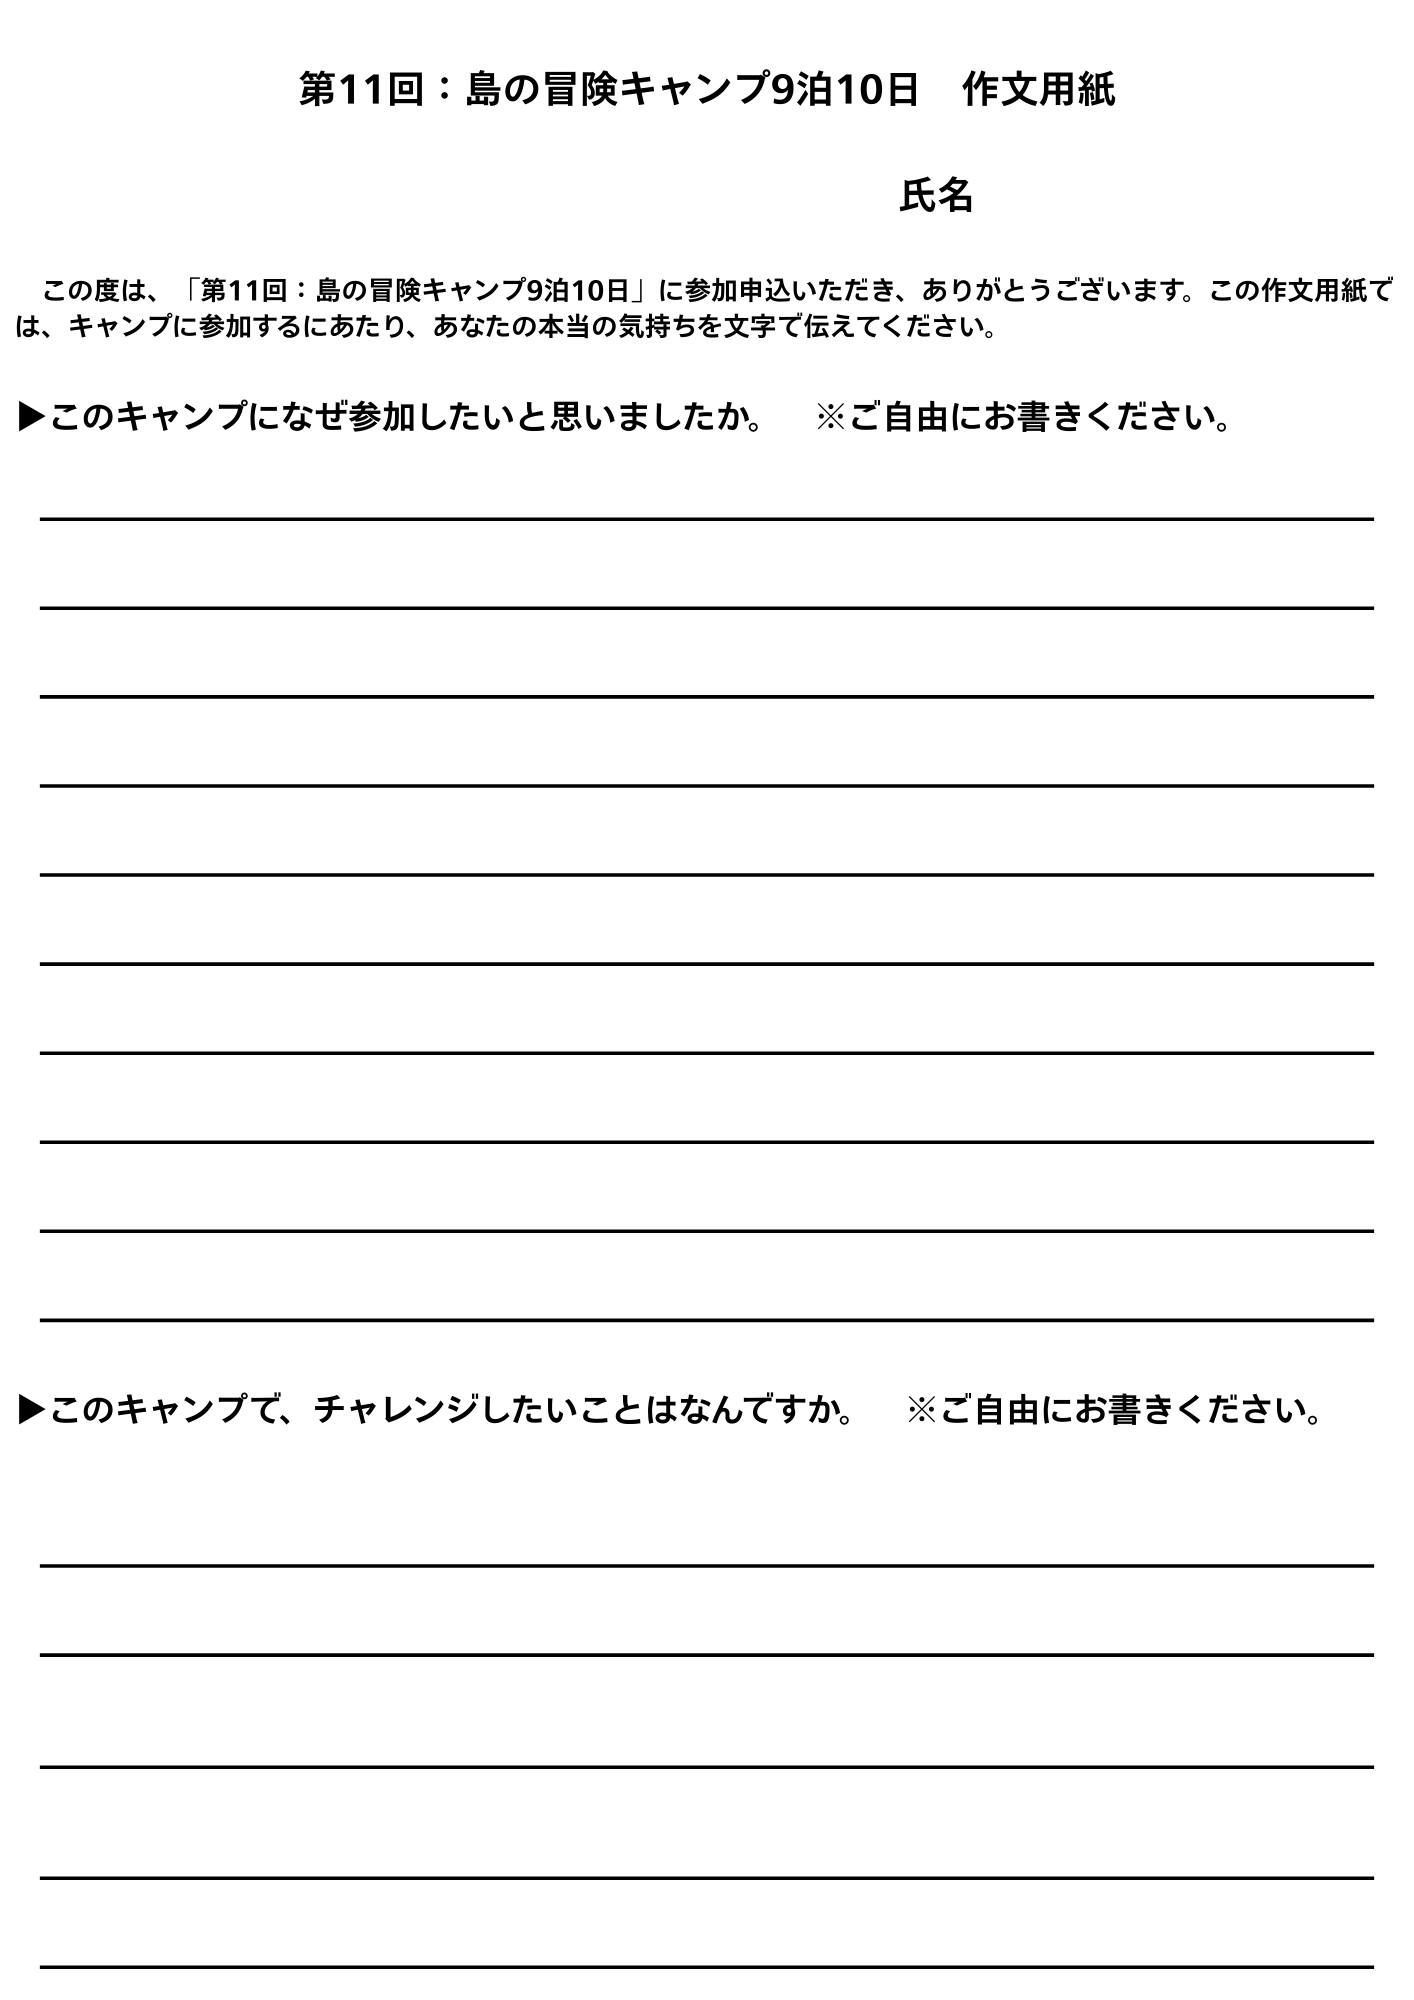 第11回：島の冒険キャンプ9泊10日　作文用紙
氏名
　この度は、「第11回：島の冒険キャンプ9泊10日」に参加申込いただき、ありがとうございます。この作文用紙で
は、キャンプに参加するにあたり、あなたの本当の気持ちを文字で伝えてください。
▶このキャンプになぜ参加したいと思いましたか。　※ご自由にお書きください。
▶このキャンプで、チャレンジしたいことはなんですか。　※ご自由にお書きください。